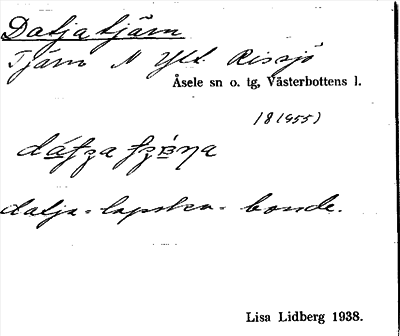 Daljatjärn
Tjärn N Ytt. Rissjö
Åsele sn o. tg, Västerbottens l.
18(955)
dalja = lapska = bonde.
Lisa Lidberg 1938.